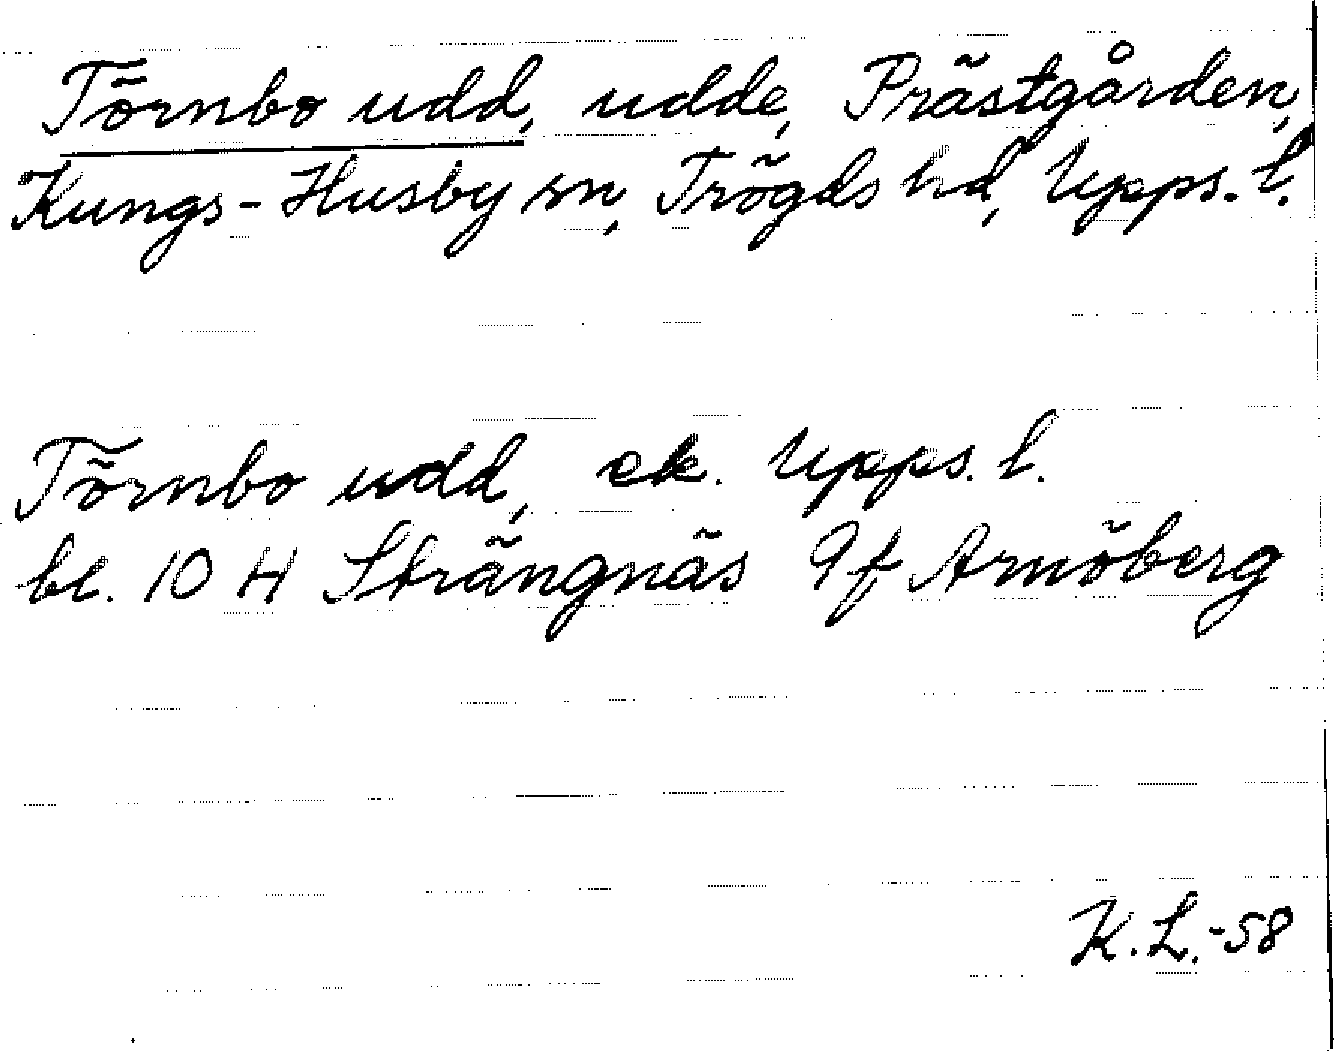 Törnbo udd, udde, Prästgården,
Kungs-Husby sn, Trögds hd, Upps. l.
Törnbo udd, ek. Upps. l.
bl. 10 H Strängnäs 9f Arnöberg
K.L.-58